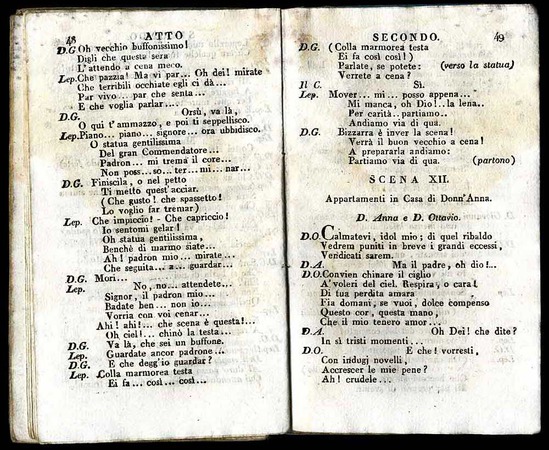 48 ATTO
D.G Oh vecchio buffonissimo!
Digli che questa sera
L'attendo a cena meco.
Lep. Che pazzia! Ma vi par... Oh dei! mirate
Che terribili occhiate egli ci dà...
Par vivo... par che senta...
E che voglia parlar....
D.G. Orsù, va là,
O qui t'ammazzo, e poi ti seppellisco.
Lep. Piano... piano... signore... ora ubbidisco.
O statua gentilissima
Del gran Commendatore...
Padron... mi trema il core...
Non poss... so... ter... mi... nar...
D.G. Finiscila, o nel petto
Ti metto quest'acciar.
(Che gusto! che spassetto!
Lo voglio far tremar)
Lep. Che impiccio! - Che capriccio!
Io sentomi gelar!
Oh statua gentilissima,
Benchè di marmo siate...
Ah! padron mio... mirate...
Che seguita... a... guardar...
D.G. Mori...
Lep. No, no... attendete...
Signor, il padron mio...
Badate ben... non io...
Vorria con voi cenar...
Ahi! ahi!... che scena è questa!...
Oh ciel!... chinò la testa...
D.G. Va là, che sei un buffone.
Lep. Guardate ancor padrone...
D.G. E che degg'io guardar?
Lep. Colla marmorea testa
Ei fa... così... così...
SECONDO. 49
D.G. (Colla marmorea testa
Ei fa così così!)
Parlate, se potete: (verso la statua)
Verrete a cena?
Il C. Sì.
Lep. Mover... mi... posso appena...
Mi manca, oh Dio!.. la lena..
Per carità.. partiamo..
Andiamo via di qua.
D.G. Bizzarra è inver la scena!
Verrà il buon vecchio a cena!
A prepararla andiamo:
Partiamo via di qua. (partono)
SCENA XII.
Appartamenti in Casa di Donn'Anna.
D. Anna e D. Ottavio.
D.O. Calmatevi, idol mio; di quel ribaldo
Vedrem puniti in breve i grandi eccessi,
Verdicati sarem.
D.A. Ma il padre, oh dio!..
D.O. Convien chinare il ciglio
A' voleri del ciel. Respira, o cara!
Di tua perdita amara
Fia domani, se vuoi, dolce compenso
Questo cor, questa mano,
Che il mio tenero amor...
D.A. Oh Dei! che dite?
In sì tristi momenti...
D.O. E che! vorresti,
Con indugj novelli,
Accrescer le mie pene?
Ah! crudele...